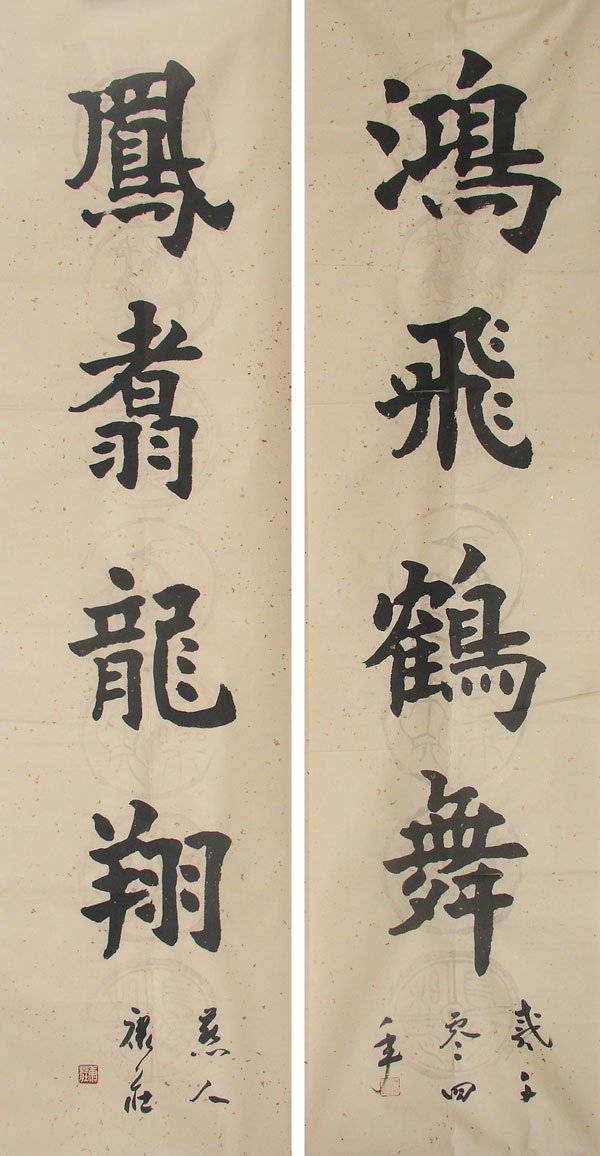 鴻飛鶴舞
貳千
零四
年
鳳翥龍翔
燕人